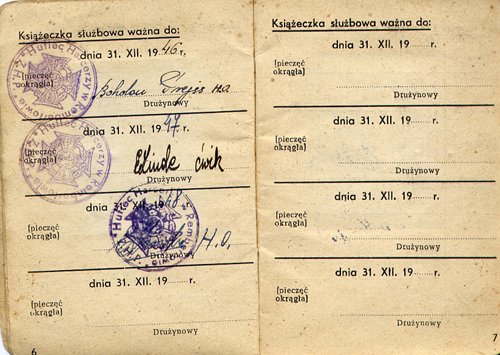 Książeczka służbowa ważna do:
dnia 31. XII. 1946 r.
(pieczęć
okrągła)
Drużynowy
dnia 31. XII. 1947 r.
(pieczęć
okrągła)
ćwik
Drużynowy
dnia 31. XII. 1948 r.
(pieczęć
okrągła)
H.O.
Drużynowy
dnia 31. XII. 19 r.
(pieczęć
okrągła)
Drużynowy
6
Z.H.P. Hufiec Harcerzy w Rembertowie
Z.H.P. Hufiec Harcerzy w Rembertowie
Hufiec
Książeczka służbowa ważna do:
dnia 31. XII. 19 r.
(pieczęć
okrągła)
Drużynowy
dnia 31. XII. 19 r.
(pieczęć
okrągła)
Drużynowy
dnia 31. XII. 19 r.
(pieczęć
okrągła)
Drużynowy
dnia 31. XII. 19 r.
(pieczęć
okrągła)
Drużynowy
7